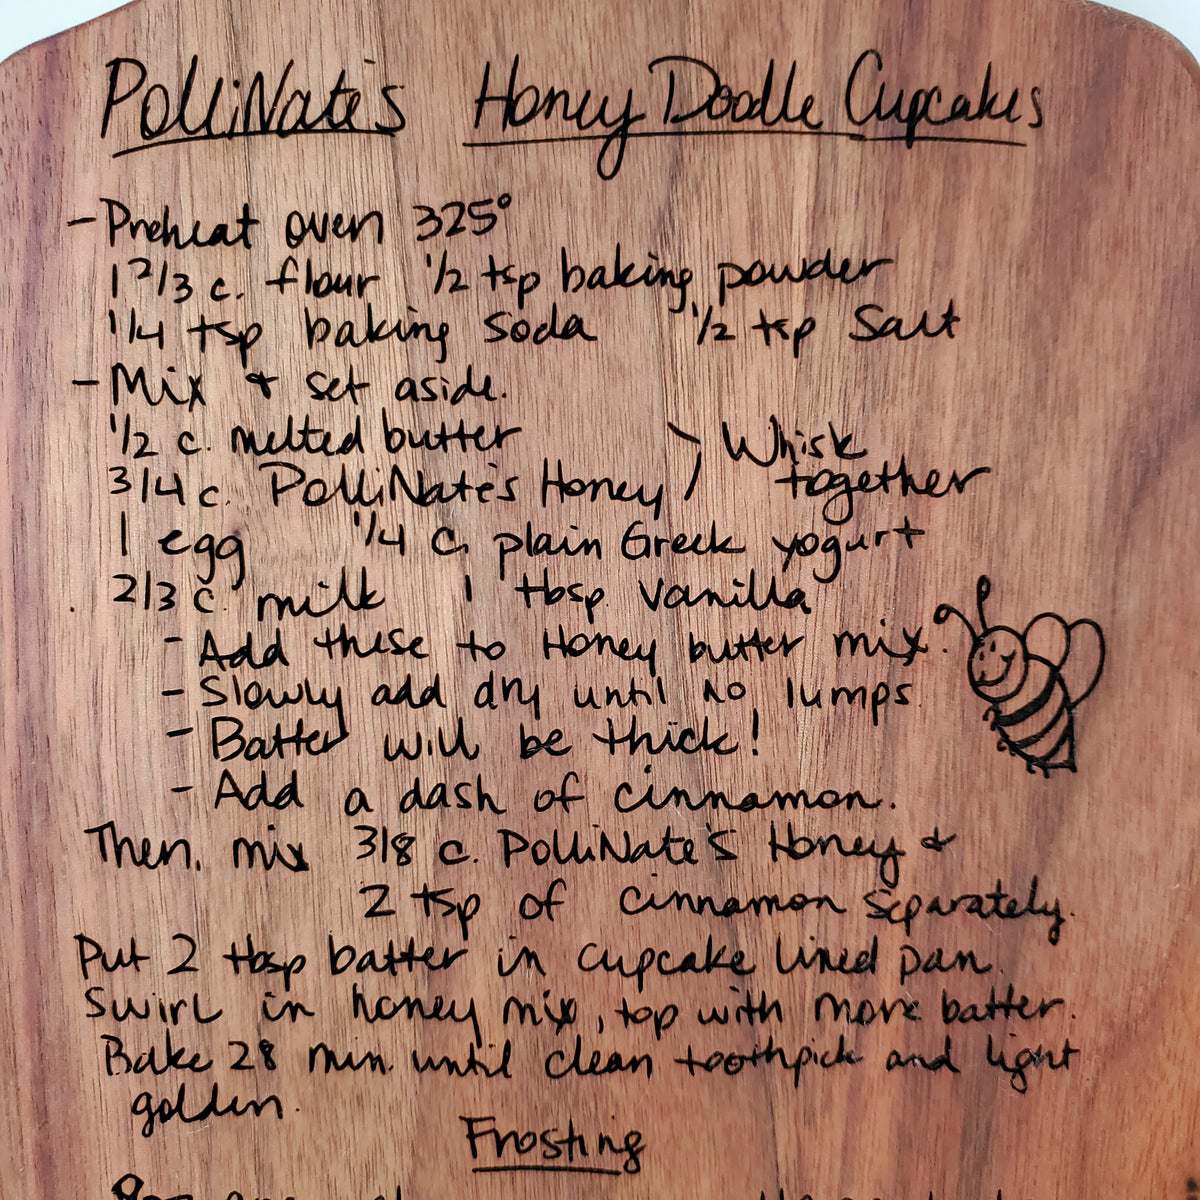 PolliNate's Honey Doodle Cupcakes
- Preheat oven 325°
1 2/3 c. flour 1/2 tsp baking powder
1/4 tsp baking soda 1/2 tsp Salt
- Mix & set aside.
1/2 c. melted butter
3/4 c. PolliNate's Honey } Whisk together
1 egg 1/4 c. plain Greek yogurt
2/3 c. milk 1 tbsp. Vanilla
- Add these to Honey butter mix.
- Slowly add dry until no lumps.
- Batter will be thick!
- Add a dash of cinnamon.
Then, mix 3/8 c. PolliNate's Honey &
2 tsp of cinnamon separately.
Put 2 tbsp batter in cupcake lined pan.
Swirl in honey mix, top with more batter.
Bake 28 min. until clean toothpick and light
golden.
Frosting